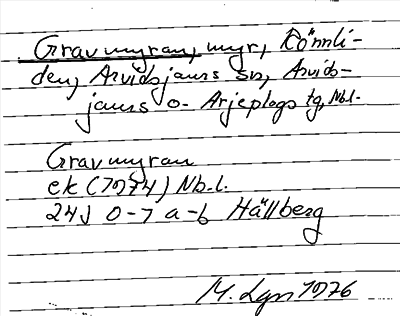 Gravmyran, myr, Rönnli-
den, Arvidsjaurs sn, Arvids-
jaurs o- Arjeplogs tg, Nb.l.
Gravmyran
ek (1974) Nb.l.
24J 0-7 a-b Hällberg
M. Lgn 1976